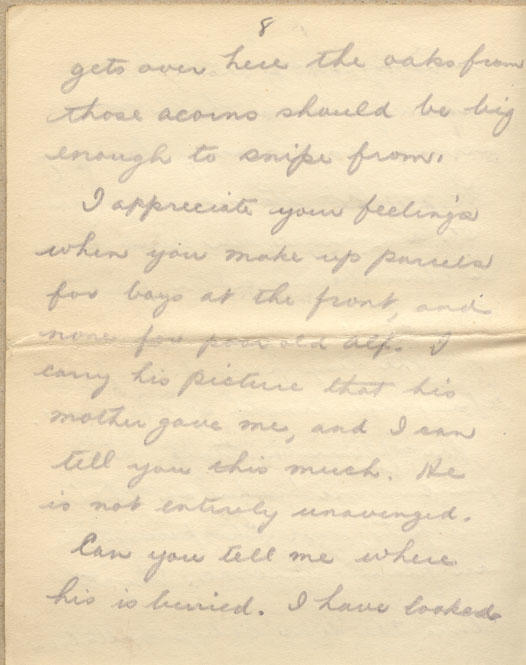 8
gets over here the oaks from
those acorns should be big
enough to snipe from.
I appreciate your feelings
when you make up parcels
for boys at the front, and
none for poor old Alf. I
carry his picture that his
mother gave me, and I can
tell you this much. He
is not entirely unavenged.
Can you tell me where
his is buried. I have looked